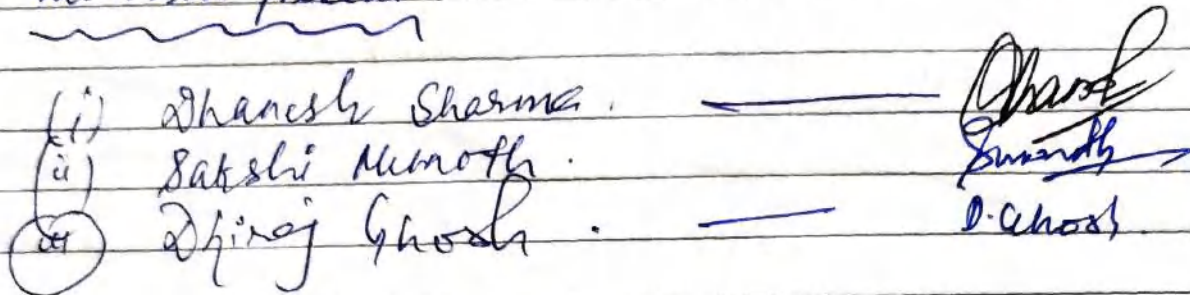 (i) Dhanesh Sharma. Dhanesh
(ii) Sakshi Mumoth.
(iii) Dhiraj Ghosh. D. Ghosh.